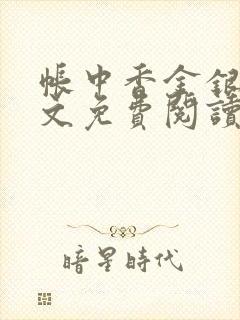 帳中香金銀
文免費閱讀
暗星時代